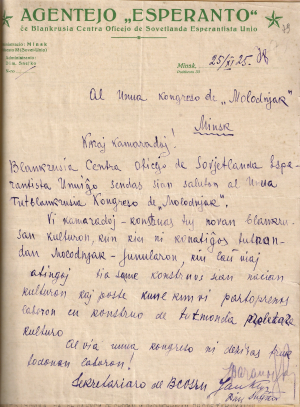 AGENTEJO „ESPERANTO"
ĉe Blankrusia Centra Oficejo de Sovetlanda Esperantista Unio
Minsk
Administracio:
Minsk, 25/XI 25.
Al Unua kongreso de „Molodnjak"
Minsk
Karaj kamaradoj!
Blankrusia Centra Oficejo de Sovjetlanda Espe-
rantista Unuiĝo sendas sian saluton al Unua
Tutblankrusia Kongreso de „Molodnjak".
Vi kamaradoj - konstruas tiun novan blankru-
san kulturon, kun kiu ni konatiĝos tutmon-
dan
atingoj tia same konstruos sian nacian
kulturon kaj poste kune kun vi partoprenos
laboron en konstruo de tutmonda proleta
kulturo
Al via unua kongreso ni deziras fruk-
todonan laboron!
Sekretariaro de BCOSEU